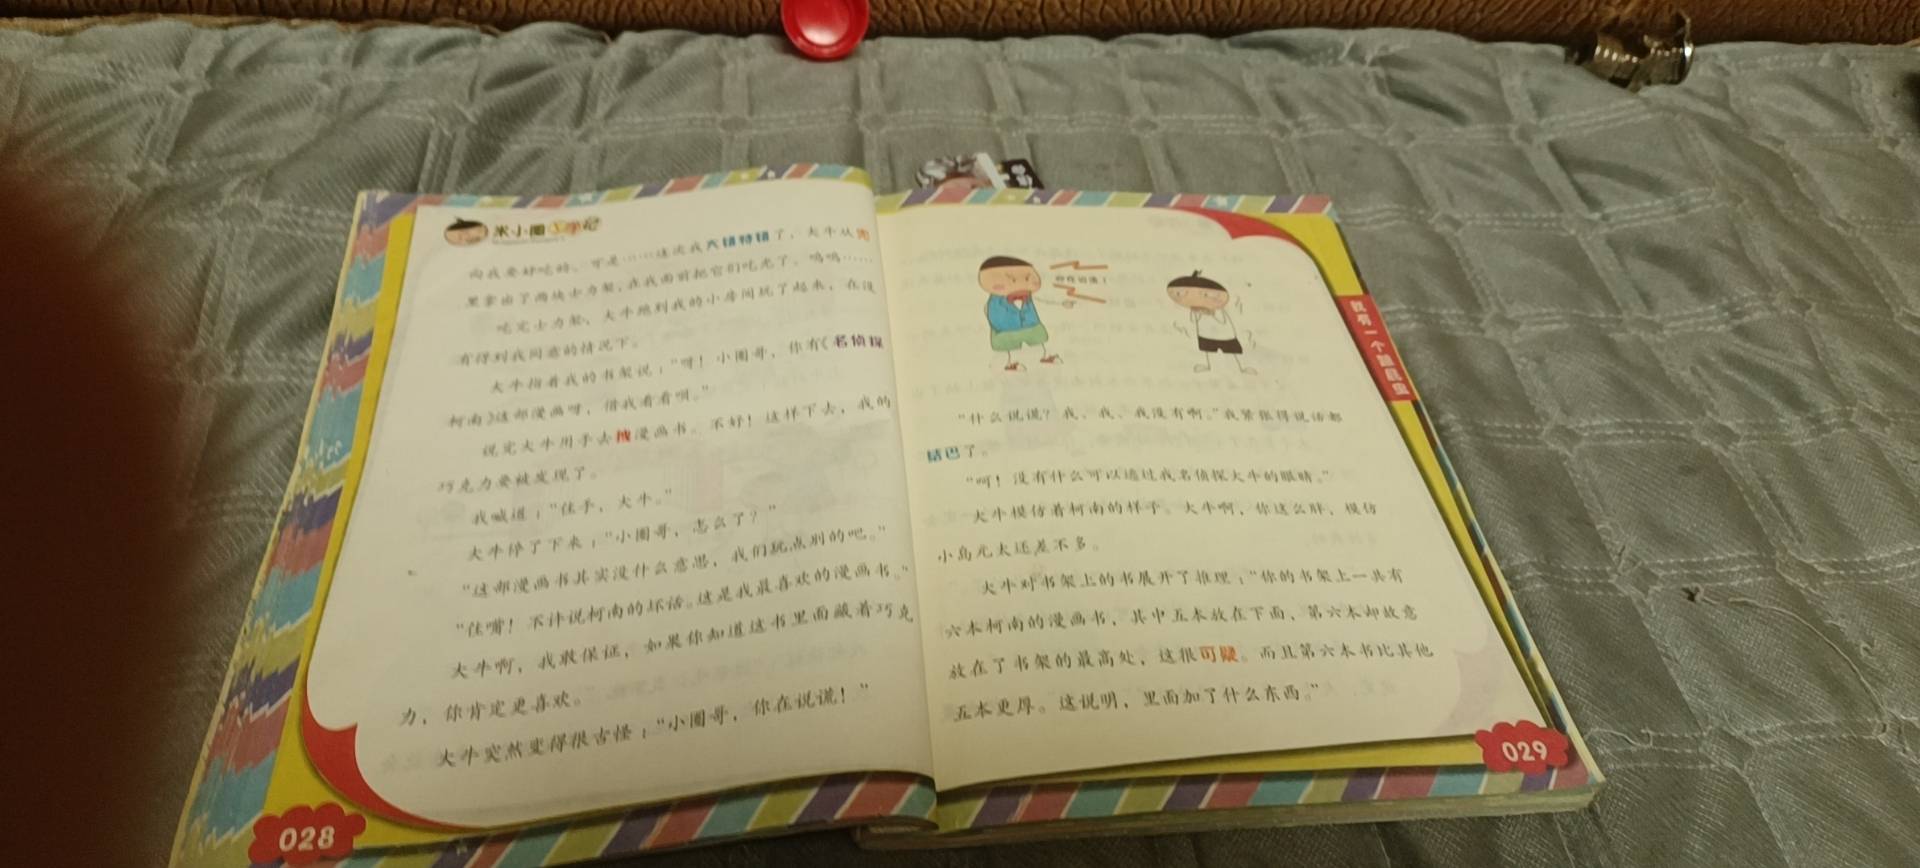 米小圈上学记
向我要好吃的。可是……这次我大错特错了，大牛从兜
里拿出了两块士力架，在我面前把它们吃光了。呜呜……
吃完士力架，大牛跑到我的小房间玩了起来，在没
有得到我同意的情况下。
大牛指着我的书架说：“呀！小圈哥，你有《名侦探
柯南》这部漫画呀，借我看看呗。”
说完大牛用手去拽漫画书。不好！这样下去，我的
巧克力要被发现了。
我喊道：“住手，大牛。”
大牛停了下来：“小圈哥，怎么了？”
“这部漫画书其实没什么意思，我们玩点别的吧。”
“住嘴！不许说柯南的坏话。这是我最喜欢的漫画书。”
大牛啊，我敢保证，如果你知道这书里面藏着巧克
力，你肯定更喜欢。
大牛突然变得很古怪：“小圈哥，你在说谎！”
028
你在说谎！
“什么说谎？我、我、我没有啊。”我紧张得说话都
结巴了。
“呵！没有什么可以逃过我名侦探大牛的眼睛。”
大牛模仿着柯南的样子。大牛啊，你这么胖，模仿
小岛元太还差不多。
大牛对书架上的书展开了推理：“你的书架上一共有
六本柯南的漫画书，其中五本放在下面，第六本却故意
放在了书架的最高处，这很可疑。而且第六本书比其他
五本更厚。这说明，里面加了什么东西。”
就有一个跟屁虫
029